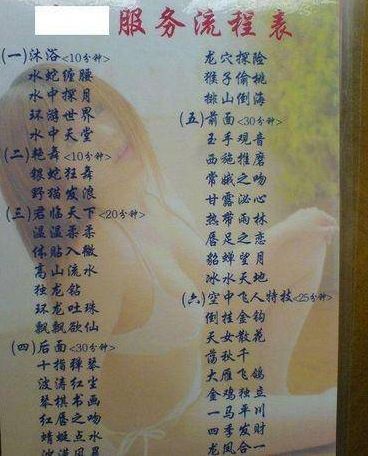 服务流程表
(一)沐浴<10分钟>
水蛇缠腰
水中探月
环游世界
水中天堂
(二)艳舞<10分钟>
银蛇狂舞
野猫发浪
(三)君临天下<20分钟>
温温柔柔
体贴入微
高山流水
独龙钻
环龙吐珠
飘飘欲仙
(四)后面<30分钟>
十指弹琴
波涛红尘
琴棋书画
红唇之吻
蜻蜓点水
龙穴探险
猴子偷桃
排山倒海
(五)前面<30分钟>
玉手观音
西施推磨
常娥之吻
甘露泌心
热带雨林
唇足之恋
貂蝉望月
冰水天地
(六)空中飞人特技<25分钟>
倒挂金钩
天女散花
荡秋千
大雁飞鸽
金鸡独立
一马平川
四季发财
龙凤合一